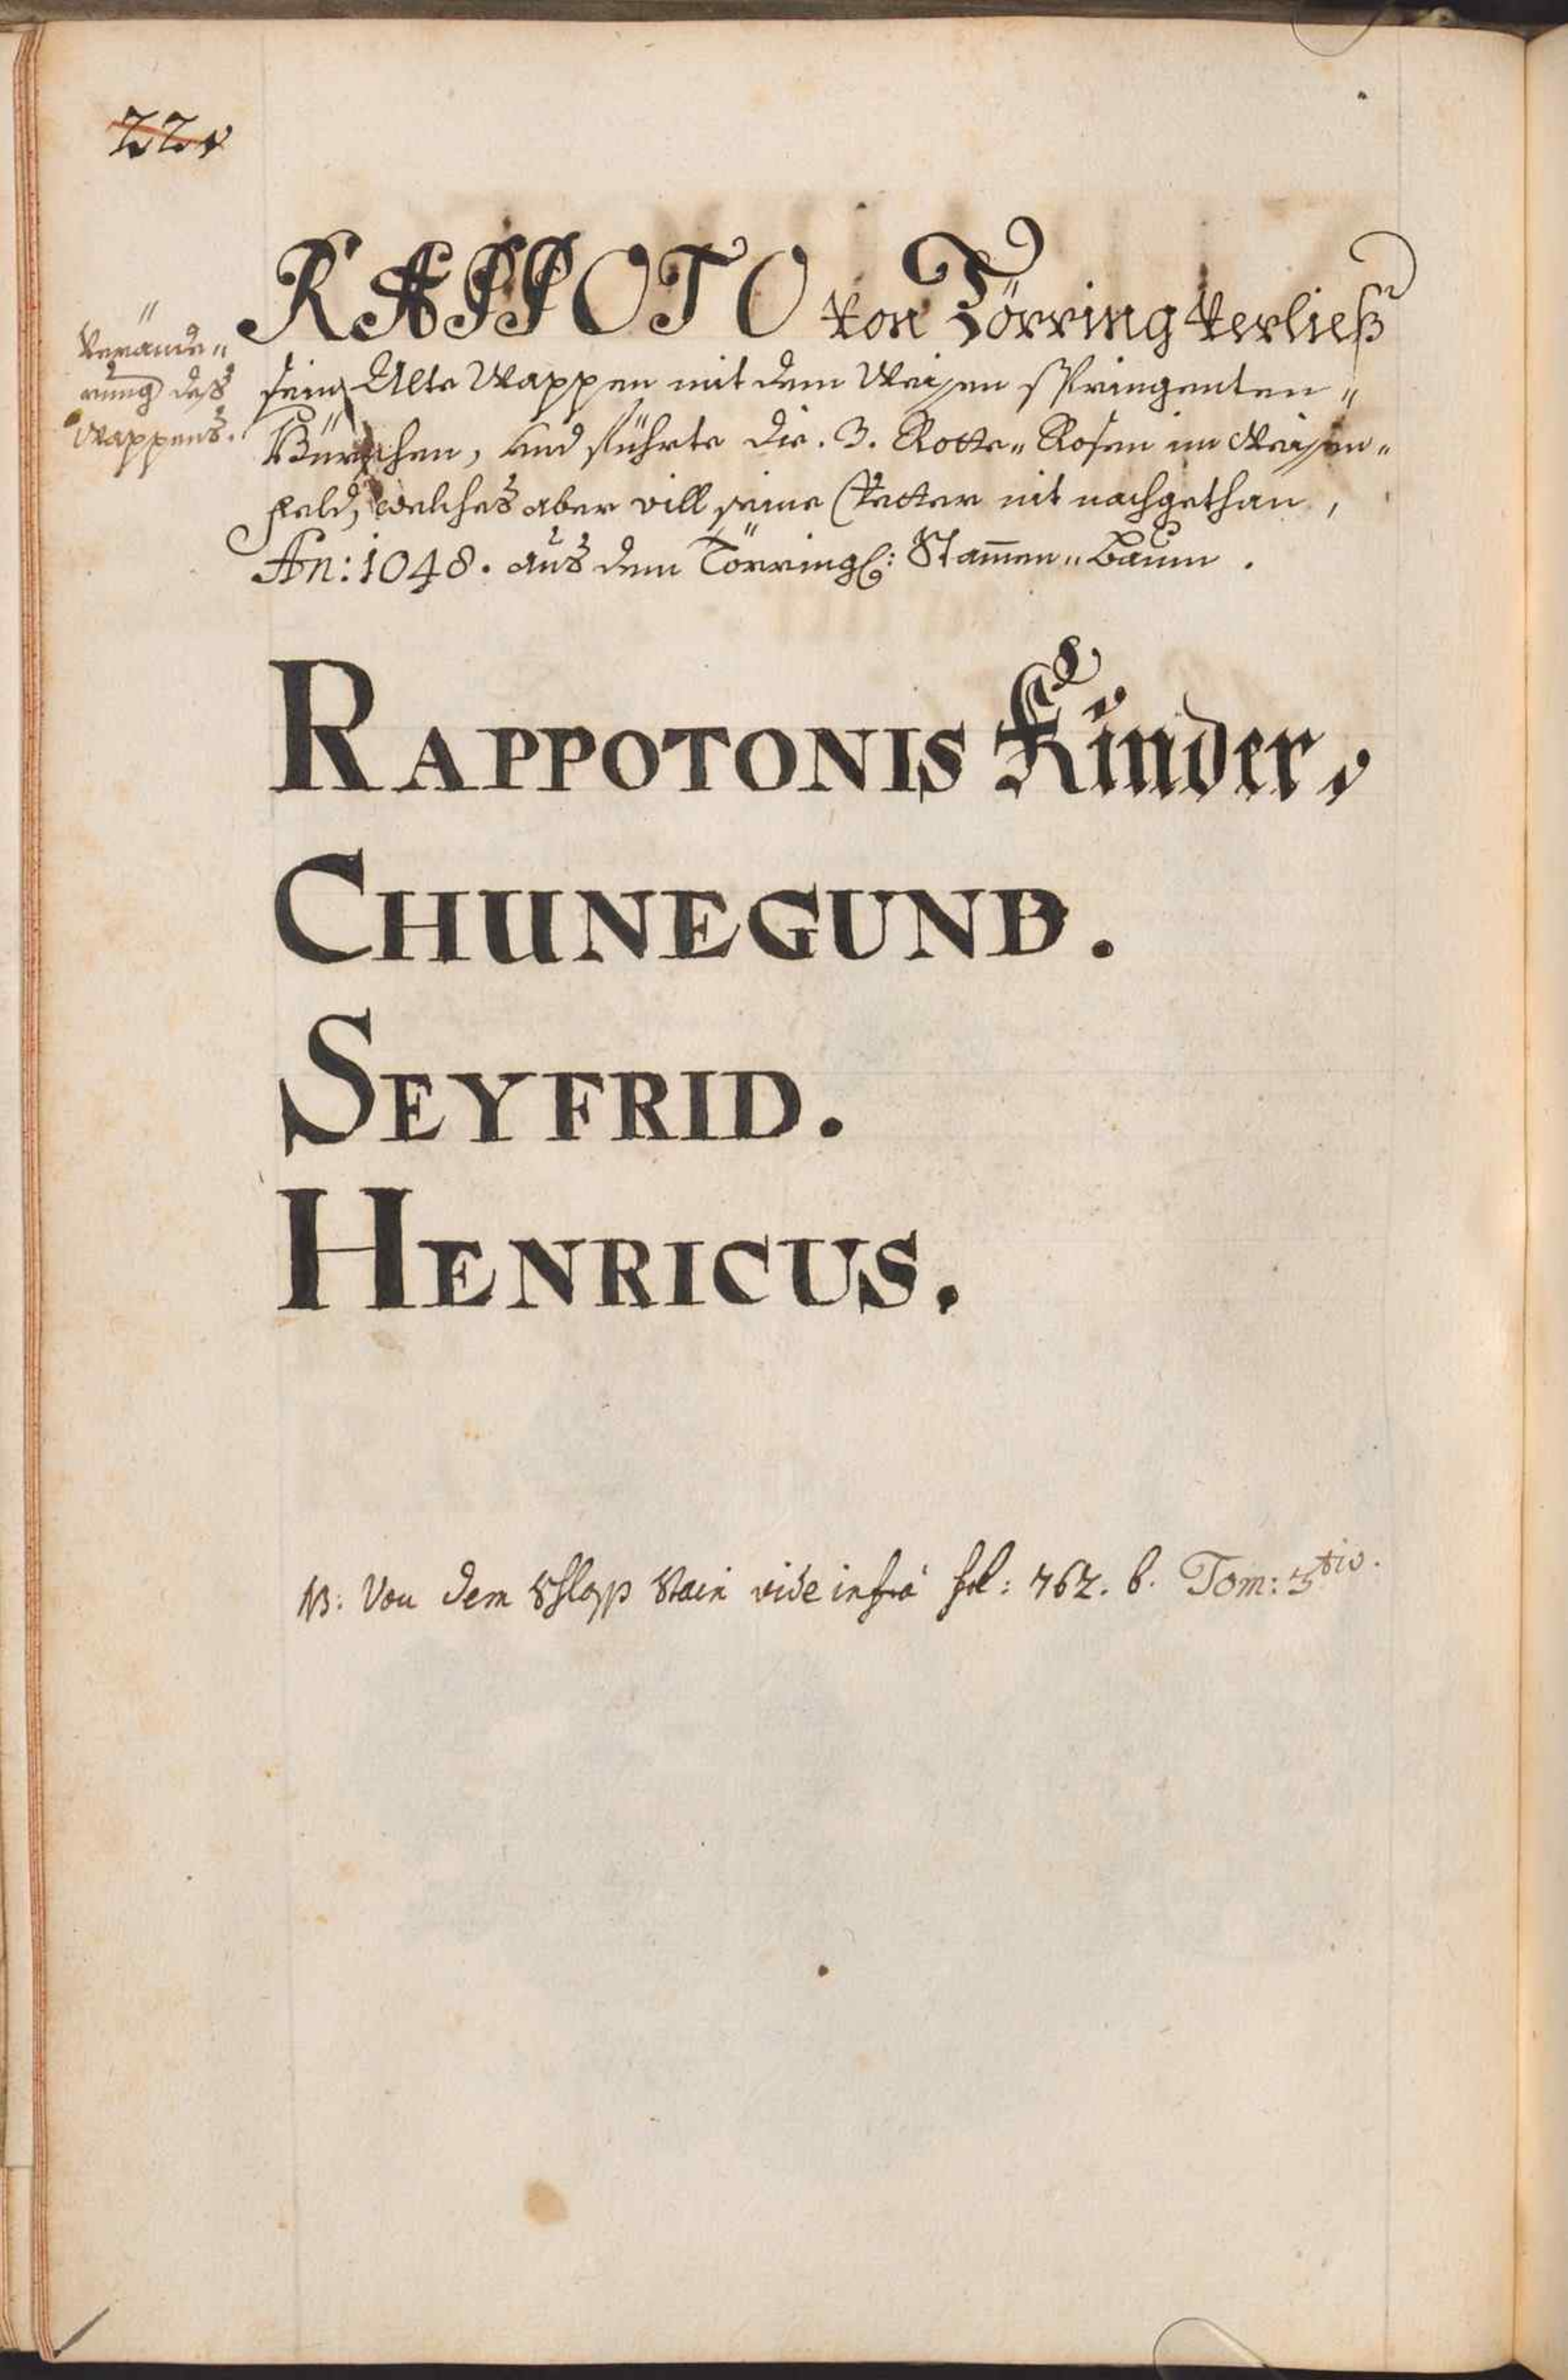 22v
Verände„
rung deß
Wappens.
RAPPOTO von Törring verließ
sein Alte Wappen mit dem Weissen springenten„
Bürschen, und führte die .3. Rotte„ Rosen im Weissen„
feld, welches aber vill seine Vetter nit nachgethan,
An: 1048. aus dem Törringl: Stam̄en„Baum.
RAPPOTONIS Künder,
CHUNEGUND.
SEYFRID.
HENRICUS.
NB: Von dem Schloss Stain vide infrà fol: 762. b. Tom: 3tio.